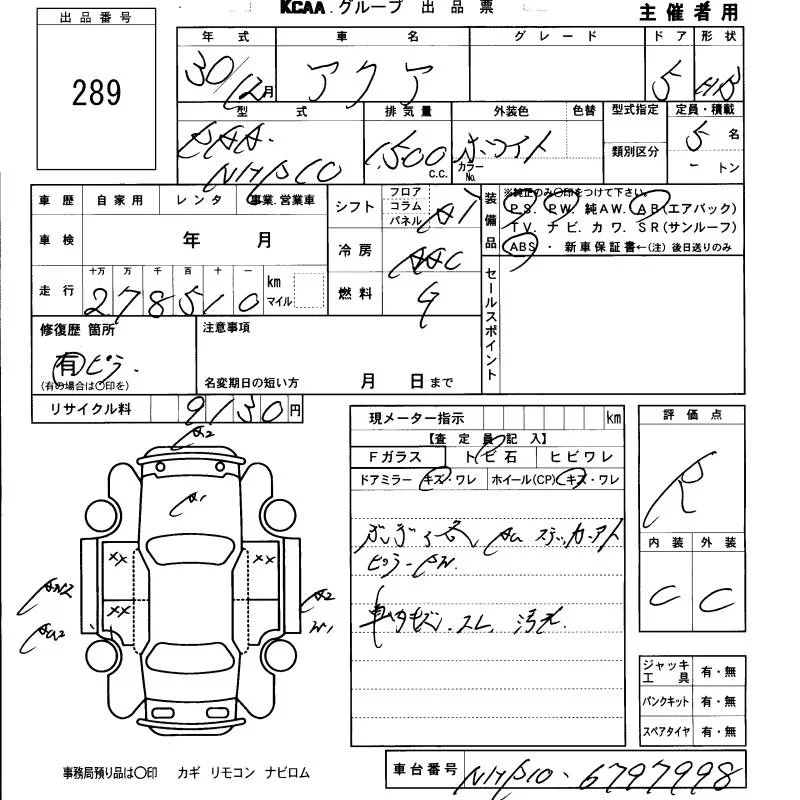 KCAA.グループ 出品票
主催者用
出品番号
289
年式 車名 グレード ドア 形状
30/12月 アクア 5 HB
型式 排気量 外装色 色替 型式指定 定員・積載
NHP10 1,500 c.c. ホワイト カラーNo. 類別区分 5名
- トン
車歴 自家用 レンタ 事業.営業車
シフト フロア コラム パネル AT
装備品 ※純正のみ〇印をつけて下さい。
PS. PW. 純AW. AB(エアバック)
TV. ナビ. カワ. SR(サンルーフ)
ABS ・ 新車保証書←(注)後日送りのみ
車検 年 月
冷房 AAC
走行 十万 万 千 百 十 一 km マイル
278510
燃料 G
セールスポイント
修復歴 箇所
有 ピラー
(有の場合は〇印を)
注意事項
名変期日の短い方 月 日まで
リサイクル料 9130円
現メーター指示 km
【査定員記入】
Fガラス トビ石 ヒビワレ
ドアミラー キズ・ワレ ホイール(CP) キズ・ワレ
ピラー
車内キズ.スレ.汚れ
評価点
R
内装 外装
C C
A2
A1
XX XX
XX
A2
W1
ジャッキ工具 有・無
パンクキット 有・無
スペアタイヤ 有・無
事務局預り品は〇印 カギ リモコン ナビロム
車台番号 NHP10-6797998